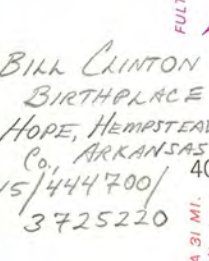 BILL CLINTON
BIRTHPLACE
HOPE, HEMPSTEAD
Co., ARKANSAS
15/444700/
3725220
40
FULT
A 31 MI.